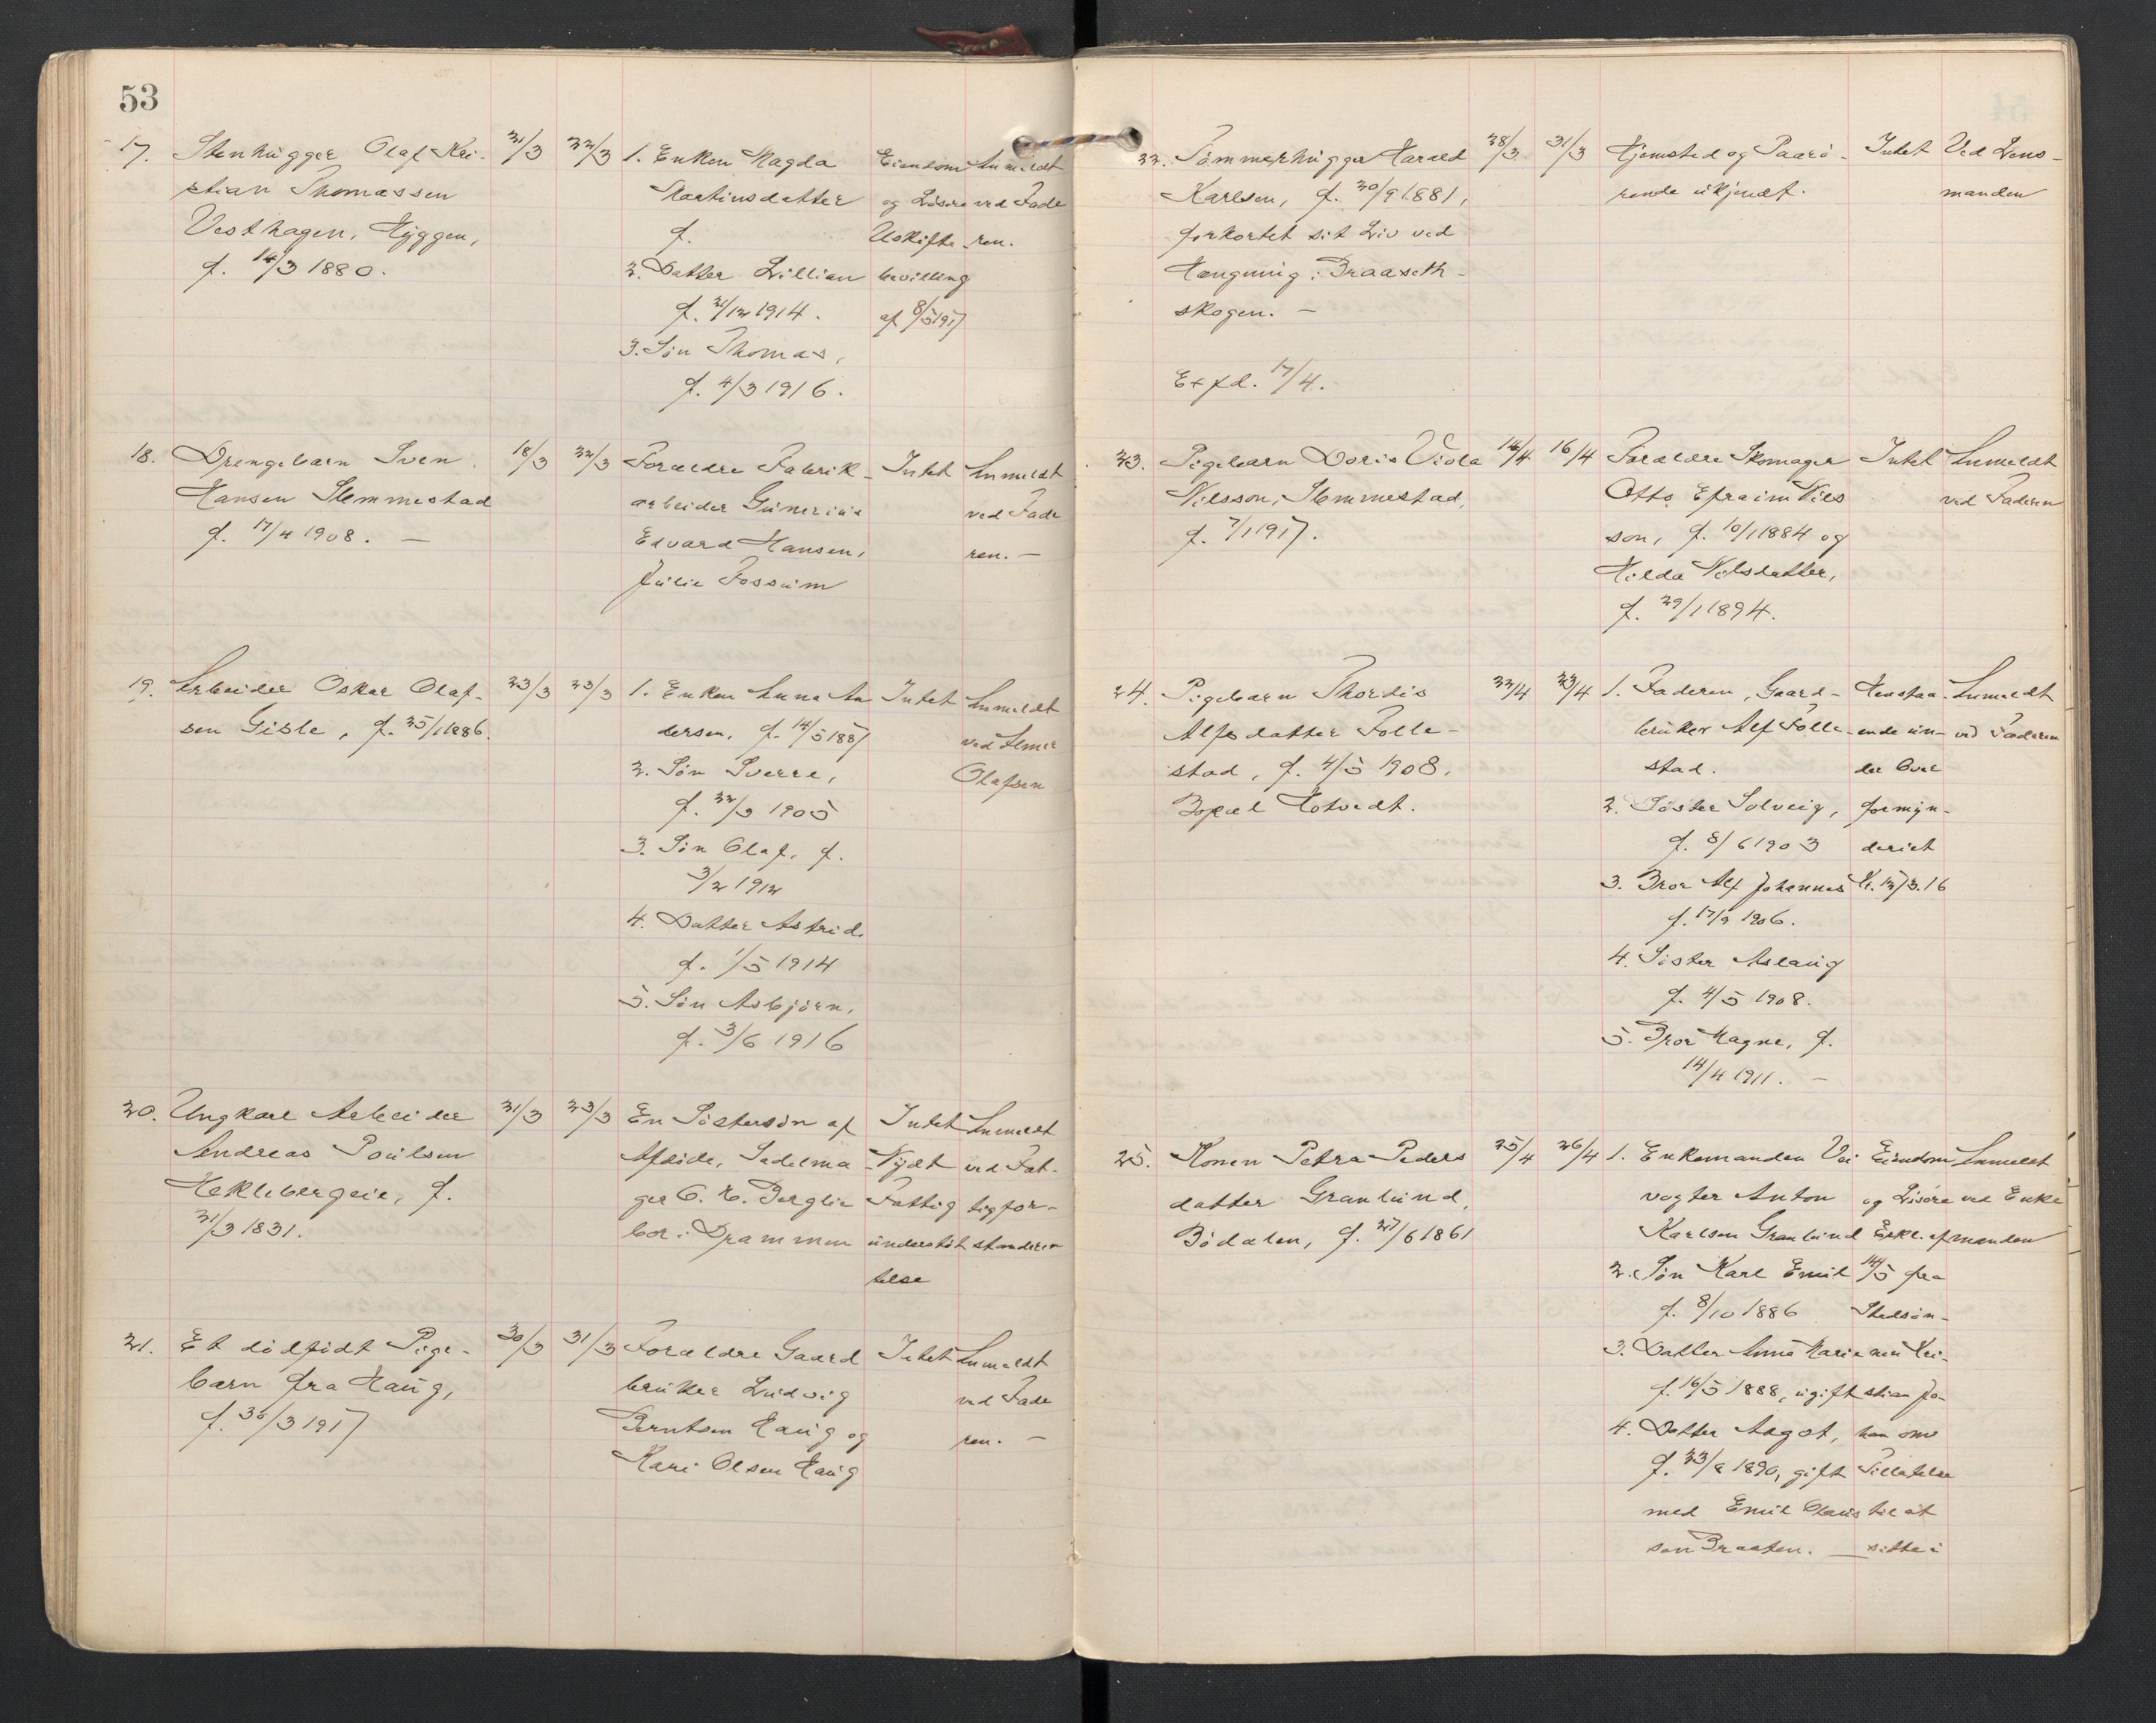 53
17. Stenhugger Olaf Kri-
stian Thomassen
Vesthagen, Hyggen,
f. 14/3 1880.
21/3 22/3
1. Enken Magda
Martinsdatter
f.
2. Datter Lillian
f. 21/12 1914.
3. Søn Thomas,
f. 4/3 1916.
Eiendom
og Løsøre
Uskifte
bevilling
af 8/5 1917
Anmeldt
ved Fade
ren.
18. Drengebarn Sven
Hansen Slemmestad
f. 17/4 1908. —
18/3 22/3
Forældre Fabrik-
arbeider Gunerius
Edvard Hansen,
Julie Fossum
Intet
Anmeldt
ved Fade
ren. —
19. Arbeider Oskar Olaf-
sen Gisle, f. 25/1 1886.
23/3 23/3
1. Enken Anna An
dersen, f. 14/5 1887
2. Søn Sverre,
f. 22/3 1905
3. Søn Olaf, f.
3/2 1912
4. Datter Astrid.
f. 1/5 1914
5. Søn Asbjørn,
f. 3/6 1916
Intet
Anmeldt
ved
Olafsen
20. Ungkarl Arbeider
Andreas Poulsen
Heklebergeie, f.
21/3 1831.
21/3 23/3
En Søstersøn af
Afdøde, Sadelma
ger O. H. Berglie
bor i Drammen
Intet
Nydt
Fattig
understøt
telse
Anmeldt
ved Fat-
tigfor-
standeren
21. Et dødfødt Pige-
barn fra Haug,
f. 30/3 1917
30/3 31/3
Forældre Gaard
bruker Ludvig
Berntsen Haug og
Kari Olsen Haug
Intet
Anmeldt
ved Fade
ren. —
22. Tømmerhugger Harald
Karlsen, f. 20/9 1881,
forkortet sit Liv ved
Hængning i Braaseth-
skogen. —
Exfd. 17/4.
28/3 31/3
Hjemsted og Paarø-
rende ukjendt.
Intet
Ved Lens-
manden
23. Pigebarn Doris Viola
Nilsson, Slemmestad,
f. 7/1 1917.
14/4 16/4
Forældre Skomager
Otto Efraim Nils
son, f. 10/1 1884 og
Hilda Nilsdatter,
f. 29/1 1894.
Intet
Anmeldt
ved Faderen
24. Pigebarn Thordis
Alfsdatter Folle-
stad, f. 4/5 1908.
Bopæl Hotvedt.
22/4 23/4
1. Faderen, Gaard-
bruker Alf Folle-
stad.
2. Søster Solveig,
f. 8/6 1903
3. Bror Alf Johannes
f. 17/2 1906.
4. Søster Aslaug
f. 4/5 1908.
5. Bror Magne, f.
14/4 1911. —
Henstaa-
ende un-
der Over
formyn-
deriet
Kr. 1273.16
Anmeldt
ved Faderen
25. Konen Petra Peders
datter Granlund,
Bødalen, f. 27/6 1861
25/4 26/4
1. Enkemanden Vei
vogter Anton
Karlsen Granlund
2. Søn Karl Emil
f. 8/10 1886
3. Datter Anna Marie
f. 16/5 1888, ugift
4. Datter Aagot,
f. 23/8 1890, gift
med Emil Olaus
sen Braaten. —
Eiendom
og Løsøre
Erkl. af
14/5 fra
Stedsøn-
nen Kri-
stian Jo-
han om
Tillatelse
til at
sitte i
Anmeldt
ved Enke
manden